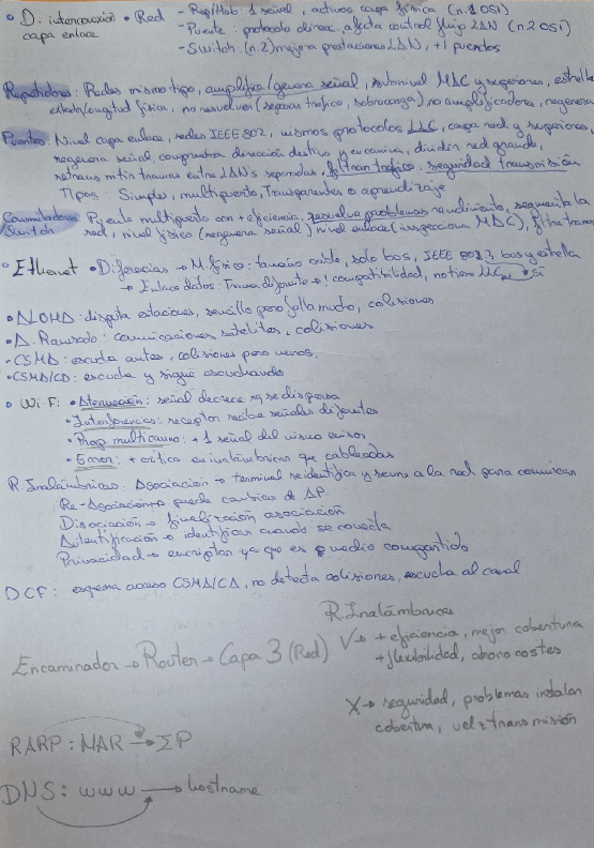 • D. interconexión • Red - Rep/Hub: 1 señal, activos capa física (n.1 OSI)
capa enlace - Puente: protocolo direcc, afecta control flujo LAN (n.2 OSI)
- Switch (n.2) mejora prestaciones LAN, +1 puentos
Repetidores: Redes mismo tipo, amplifica/genera señal, subnivel MAC y superiores, estrella
extado/longitud física, no resuelven (separar tráfico, sobrecarga) no amplificadores, regenera
Puentes: Nivel capa enlace, redes IEEE 802, mismos protocolos LLC, capa red y superiores,
regenera señal, comprueba dirección destino y encamina, dividen red grande,
retransmiten tramas entre LAN's separadas, filtran trafico, seguridad transmisión
Tipos: Simples, multipuerto, Transparentes o aprendizaje
Conmutadores/ Puente multipuerto con + eficiencia, resuelve problemas rendimiento, segmenta la
Switch red, nivel físico (regenera señal) nivel enlace (inspecciona MAC), filtra tramas
• Ethernet • Diferencias → M. físico: tamaño cable, solo bus, IEEE 802.3 bus y estrella
→ Enlace datos: Trama diferente → ! compatibilidad, no tiene LLC → sí
• ALOHA: disputa estaciones, sencillo pero falla mucho, colisiones
• A. Ranurado: comunicaciones satélites, colisiones
• CSMA: escucha antes, colisiones pero menos,
• CSMA/CD: escucha y sigue escuchando
• Wi-Fi: • Atenuación: señal decrece xq se dispersa
• Interferencias: receptor recibe señales diferentes
• Prop. multicamino: +1 señal del mismo emisor
• Error: + crítico en inalámbricas que cableadas
R. Inalámbricas: Asociación → terminal se identifica y se une a la red para comunicar
Re-Asociación → puede cambiar de AP
Disociación → finalización asociación
Autentificación → identificar cuando se conecta
Privacidad → encriptar ya que es medio compartido
DCF: esquema acceso CSMA/CA, no detecta colisiones, escucha al canal
R. Inalámbricas
V → + eficiencia, mejor cobertura
+ flexibilidad, ahorro costes
Encaminador → Router → Capa 3 (Red)
X → seguridad, problemas instalan
cobertura, vel transmisión
RARP: MAR → IP
DNS: www → hostname